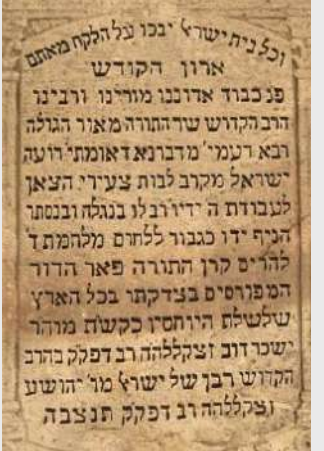 וכל בית ישראל יבכו על הלקח מאתם
ארון הקודש
פנ כבוד אדוננו מורינו ורבינו
הרב הקדוש שר התורה מאור הגולה
רבא דעמי׳ מדברנא דאומתי׳ רועה
ישראל מקרב לבות צעירי הצאן
לעבודת ה׳ ידיו רב לו בנגלה ובנסתר
הניף ידו כגבור ללחום מלחמת ד׳
להרים קרן התורה פאר הדור
המפורסים בצדקתו בכל הארץ
שלשלת היוחסין כקשת מוהר
ישכר דוב זצקללהה רב דפקק בהרב
הקדוש רבן של ישראל מר׳ יהושע
זצקללהה רב דפקק תנצבה